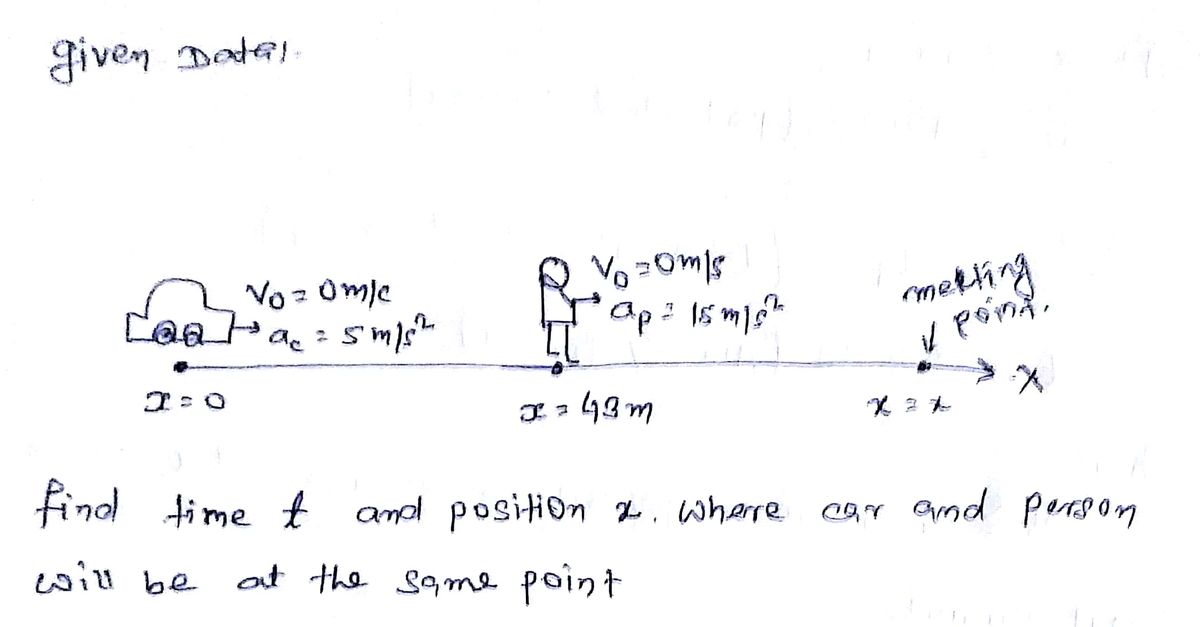 given Data:
V₀ = 0 m/s
a_c = 5 m/s²
V₀ = 0 m/s
a_p = 15 m/s²
meeting
point.
x = 0
x = 43 m
x = x
X
find time t and position x. where car and person
will be at the same point